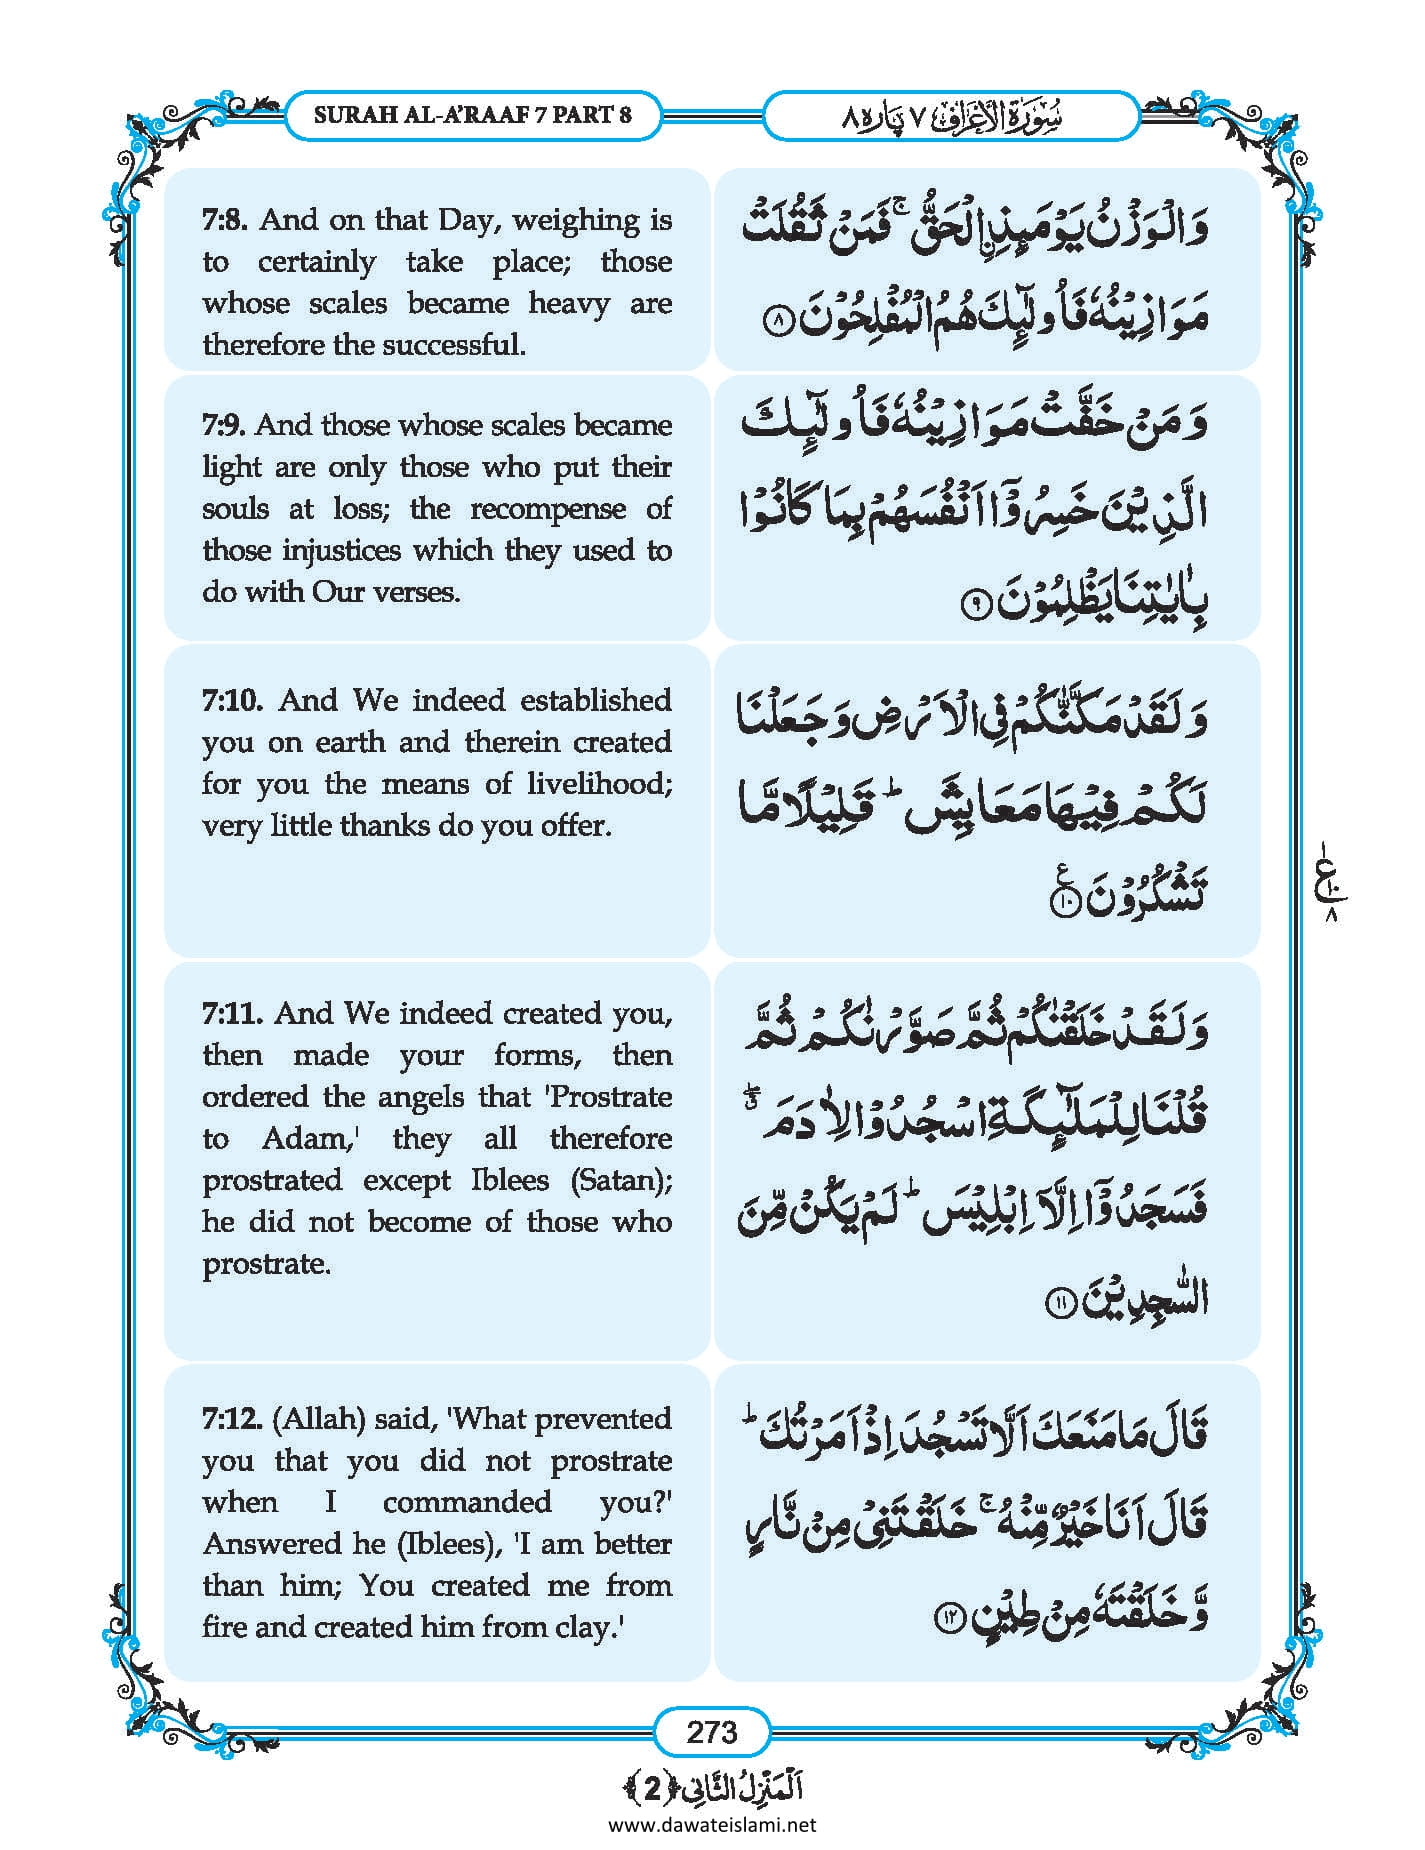 SURAH AL-A'RAAF 7 PART 8
سُوْرَةُ الْاَعْرَافِ ٧ پارہ ٨
7:8. And on that Day, weighing is
to certainly take place; those
whose scales became heavy are
therefore the successful.
وَالْوَزْنُ یَوْمَىِٕذِ ِ۟الْحَقُّ ۚ فَمَنْ ثَقُلَتْ
مَوَازِیْنُهٗ فَاُولٰٓىِٕكَ هُمُ الْمُفْلِحُوْنَ ٨
7:9. And those whose scales became
light are only those who put their
souls at loss; the recompense of
those injustices which they used to
do with Our verses.
وَ مَنْ خَفَّتْ مَوَازِیْنُهٗ فَاُولٰٓىِٕكَ
الَّذِیْنَ خَسِرُوْۤا اَنْفُسَهُمْ بِمَا كَانُوْا
بِاٰیٰتِنَا یَظْلِمُوْنَ ٩
7:10. And We indeed established
you on earth and therein created
for you the means of livelihood;
very little thanks do you offer.
وَ لَقَدْ مَكَّنّٰكُمْ فِی الْاَرْضِ وَ جَعَلْنَا
لَكُمْ فِیْهَا مَعَایِشَ ؕ قَلِیْلًا مَّا
تَشْكُرُوْنَ ١٠ ع
١ ع ١٠ ٨
7:11. And We indeed created you,
then made your forms, then
ordered the angels that 'Prostrate
to Adam,' they all therefore
prostrated except Iblees (Satan);
he did not become of those who
prostrate.
وَ لَقَدْ خَلَقْنٰكُمْ ثُمَّ صَوَّرْنٰكُمْ ثُمَّ
قُلْنَا لِلْمَلٰٓىِٕكَةِ اسْجُدُوْا لِاٰدَمَ ۖۗ
فَسَجَدُوْۤا اِلَّاۤ اِبْلِیْسَ ؕ لَمْ یَكُنْ مِّنَ
السّٰجِدِیْنَ ١١
7:12. (Allah) said, 'What prevented
you that you did not prostrate
when I commanded you?'
Answered he (Iblees), 'I am better
than him; You created me from
fire and created him from clay.'
قَالَ مَا مَنَعَكَ اَلَّا تَسْجُدَ اِذْ اَمَرْتُكَ ؕ
قَالَ اَنَا خَیْرٌ مِّنْهُ ۚ خَلَقْتَنِیْ مِنْ نَّارٍ
وَّ خَلَقْتَهٗ مِنْ طِیْنٍ ١٢
273
اَلْمَنْزِلُ الثَّانِی ﴿2﴾
www.dawateislami.net